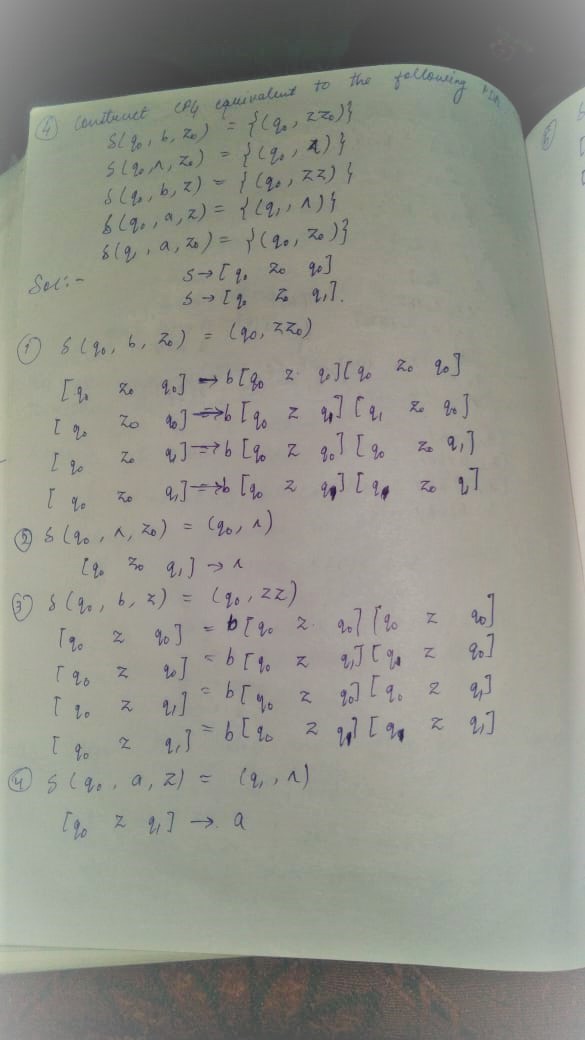 ④ Construct CFG equivalent to the following PDA
δ(q₀, b, z₀) = {(q₀, zz₀)}
δ(q₀, ʌ, z₀) = {(q₀, ʌ)}
δ(q₀, b, z) = {(q₀, zz)}
δ(q₀, a, z) = {(q₁, ʌ)}
δ(q, a, z₀) = {(q₀, z₀)}
Sol:-
S → [q₀ z₀ q₀]
S → [q₀ z₀ q₁].
① δ(q₀, b, z₀) = (q₀, zz₀)
[q₀ z₀ q₀] → b[q₀ z q₀][q₀ z₀ q₀]
[q₀ z₀ q₀] → b[q₀ z q₁][q₁ z₀ q₀]
[q₀ z₀ q₁] → b[q₀ z q₀][q₀ z₀ q₁]
[q₀ z₀ q₁] → b[q₀ z q₁][q₁ z₀ q]
② δ(q₀, ʌ, z₀) = (q₀, ʌ)
[q₀ z₀ q₁] → ʌ
③ δ(q₀, b, z) = (q₀, zz)
[q₀ z q₀] = b[q₀ z q₀][q₀ z q₀]
[q₀ z q₀] = b[q₀ z q₁][q₁ z q₀]
[q₀ z q₁] = b[q₀ z q₀][q₀ z q₁]
[q₀ z q₁] = b[q₀ z q₁][q₁ z q₁]
④ δ(q₀, a, z) = (q₁, ʌ)
[q₀ z q₁] → a